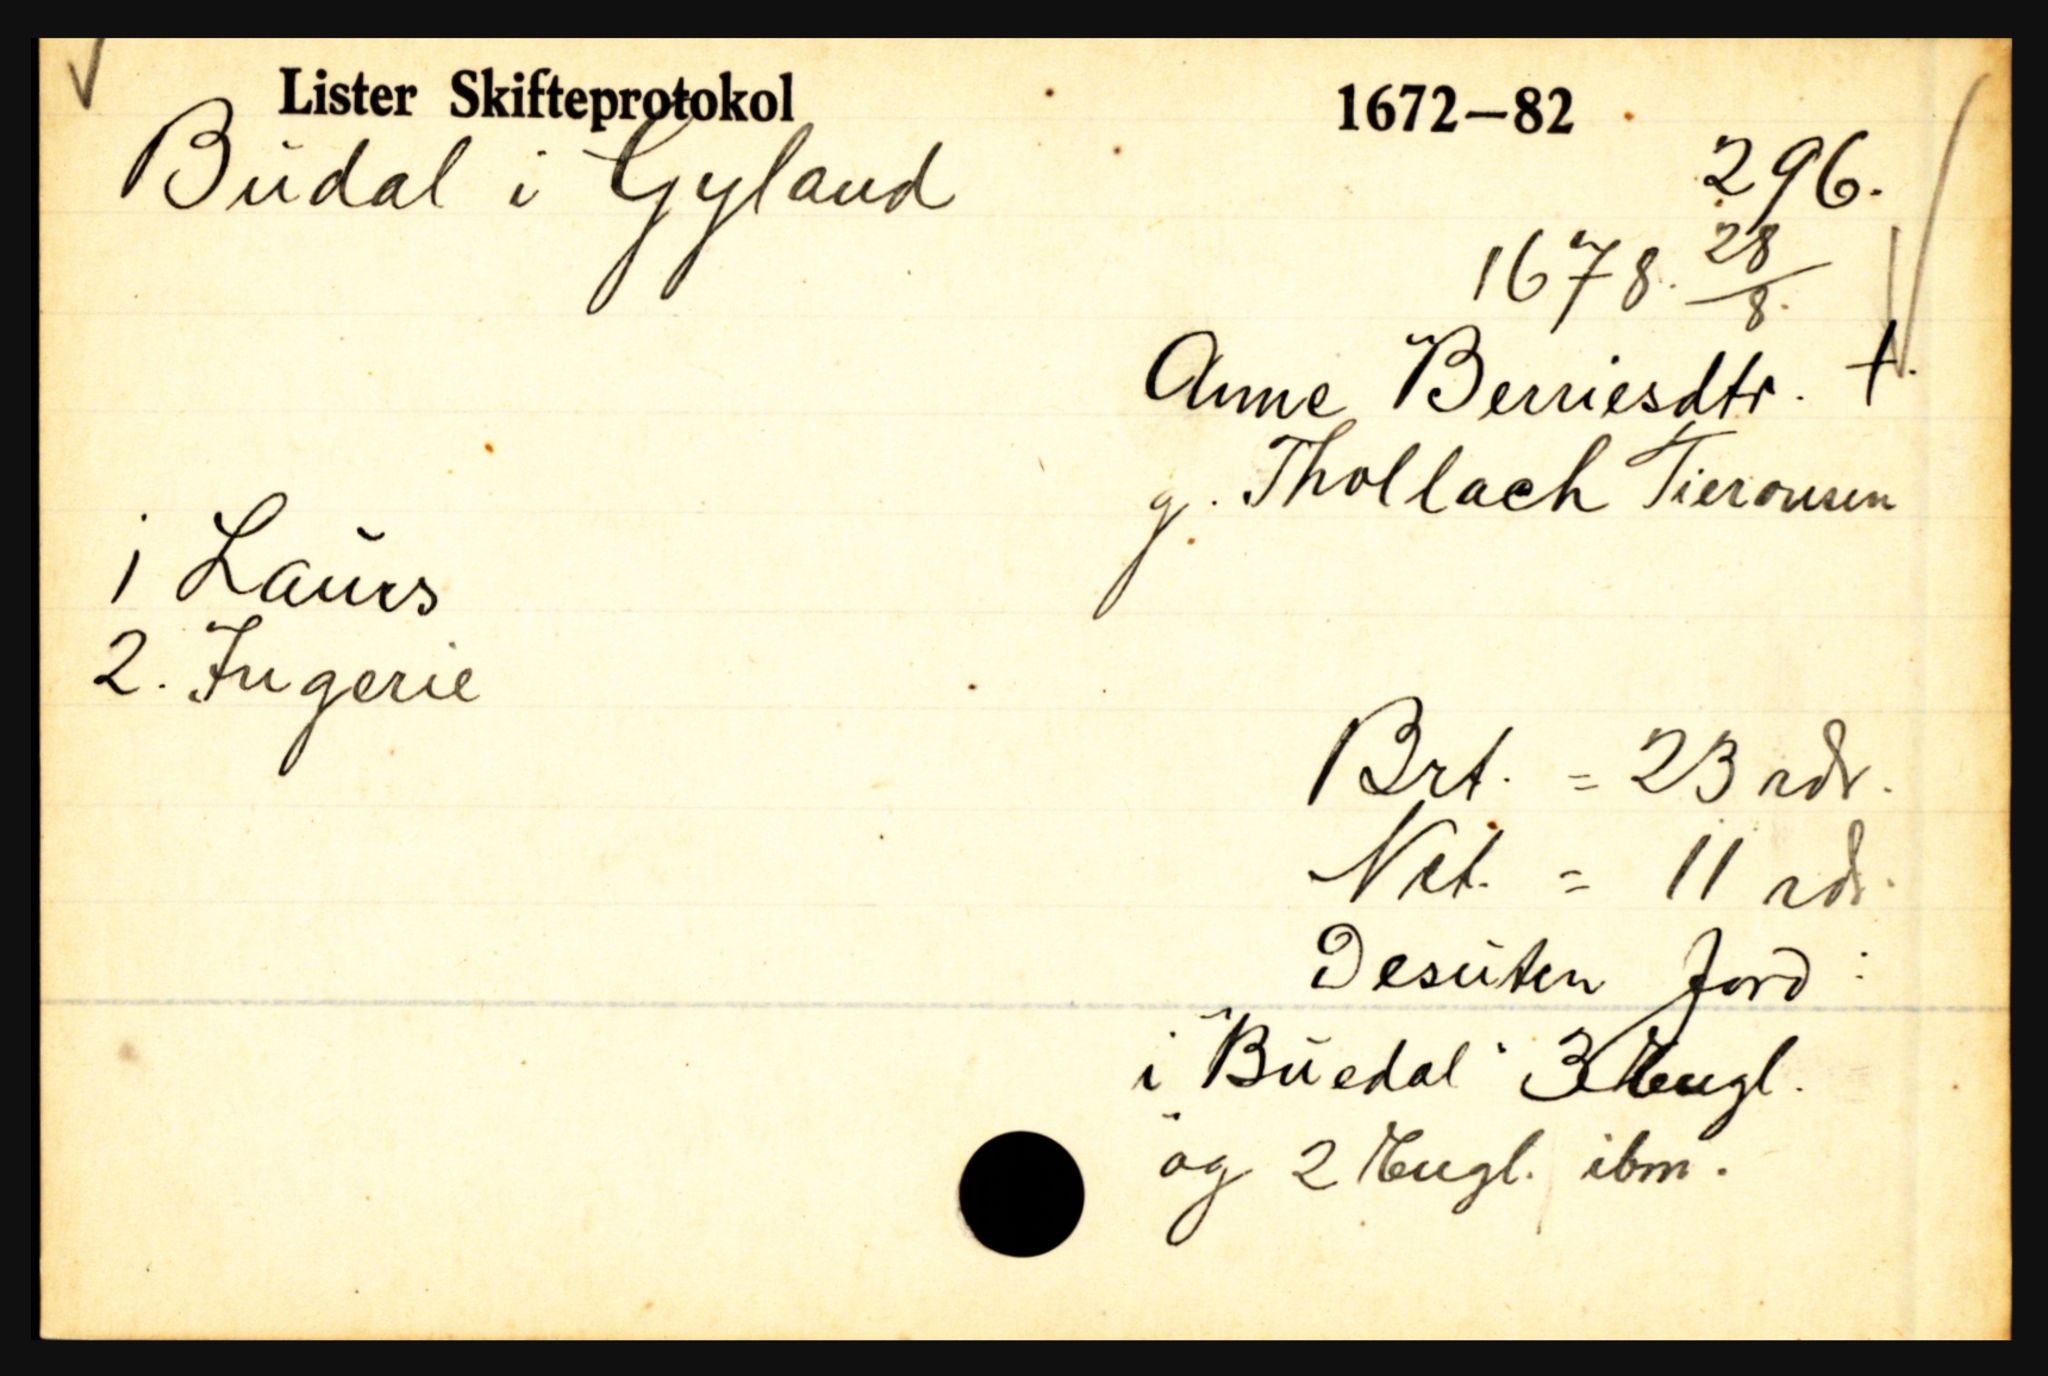 Lister Skifteprotokol 1672–82
Budal i Gyland 296.
1678. 28/8.
Anne Berriesdtr. †.
g. Thollach Tieronsen
1 Laurs
2. Ingerie
Brt. = 23 rdr.
Net. = 11 rdr.
Desuten Jord :
i "Buedal" 3 Engl.
og 2 Engl. ibm.